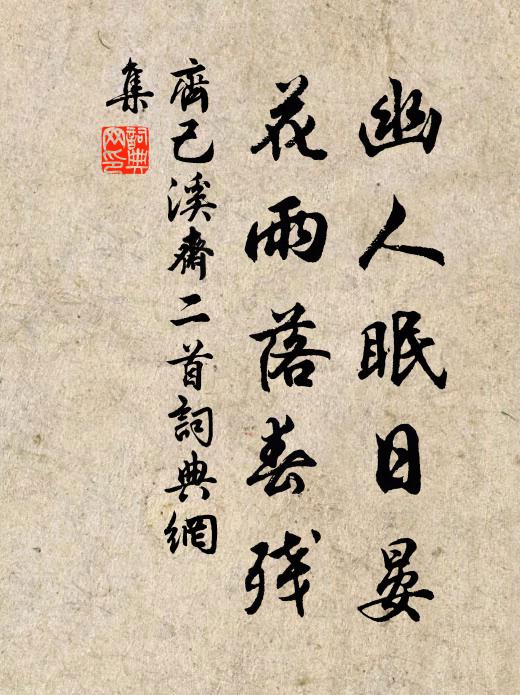 幽人眠日晏
花雨落春残
齊己溪齋二首詞典網
集
詞典
网印